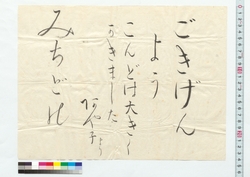 ごきげん
よう
こんどは大きく
かきました
みちどの